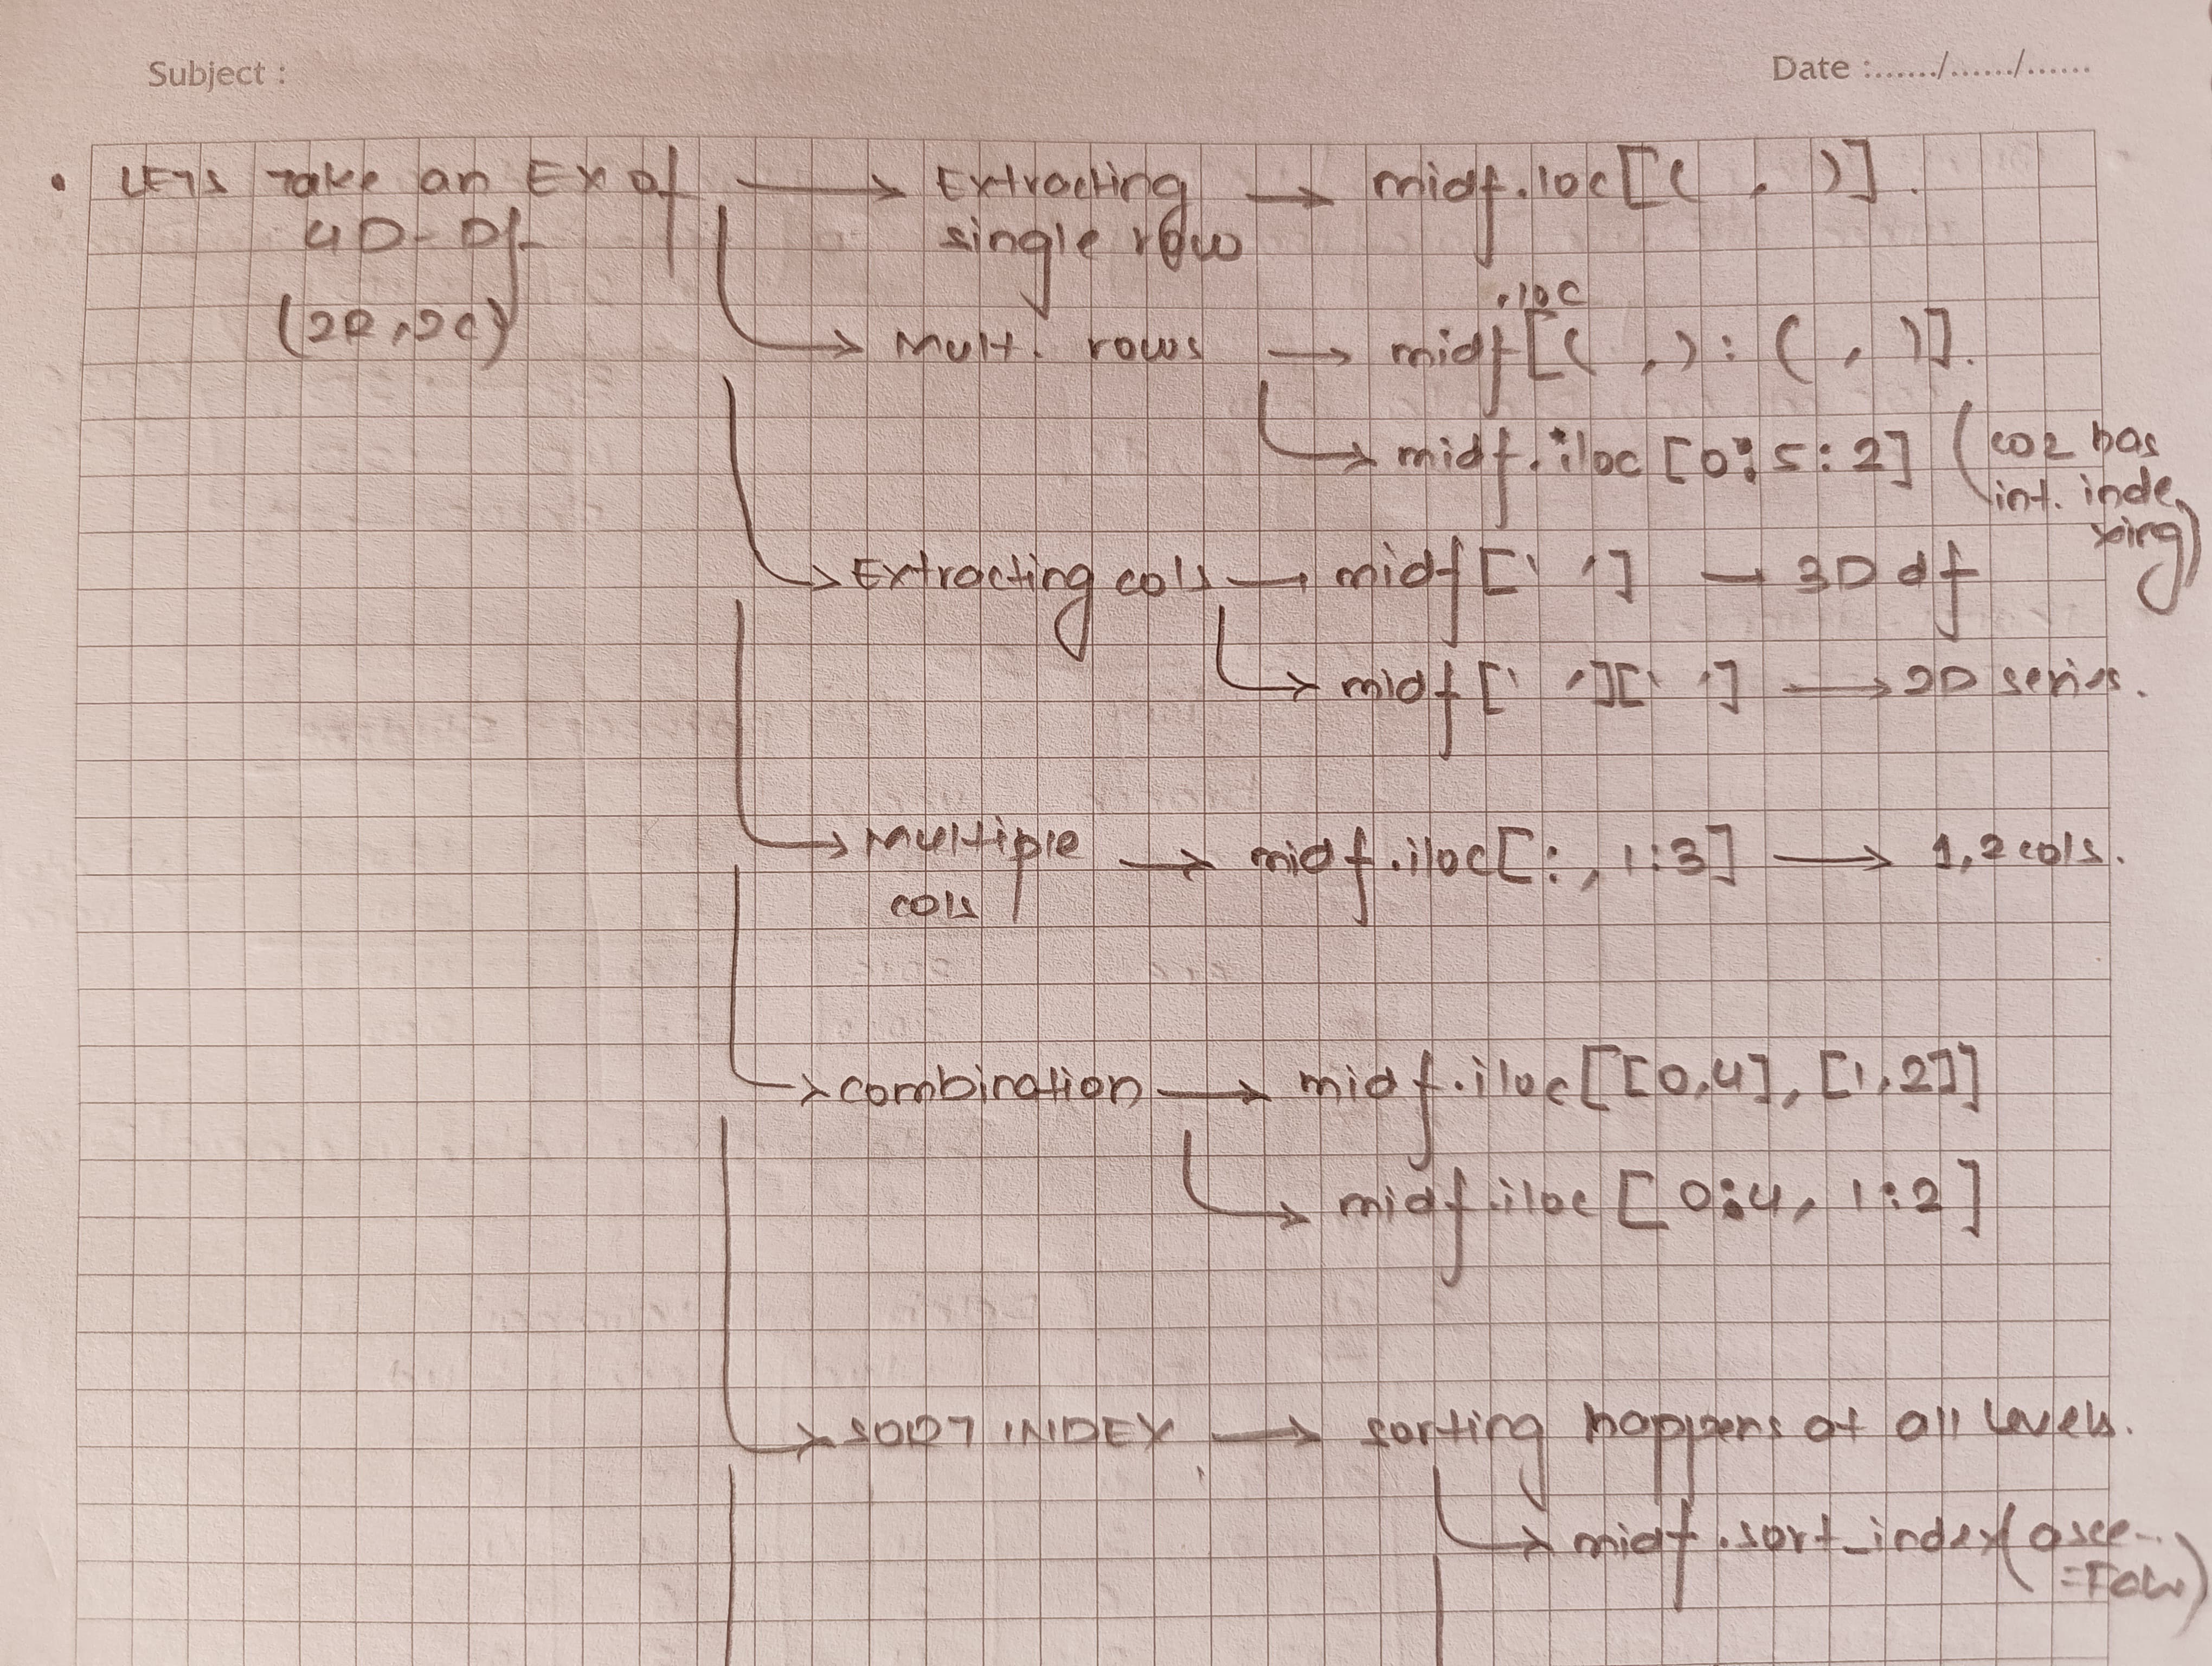 Subject :
Date :....../....../......
• LETS Take an Ex of → Extracting → midf.loc[( , )].
4D-Df single row
(2R,2C)
.loc
→ Mult. rows → midf[( ,) : ( , )].
→ midf.iloc[0:5:2] (coz has
int. inde
xing)
→ Extracting cols → midf[' '] → 3D df
→ midf[' '][' '] → 2D series.
→ Multiple → midf.iloc[:, 1:3] → 1,2 cols.
cols
→ combination → midf.iloc[[0,4],[1,2]]
→ midf.iloc[0:4, 1:2]
→ SORT INDEX → sorting happens at all levels.
→ midf.sort_index(asce-..
=False)